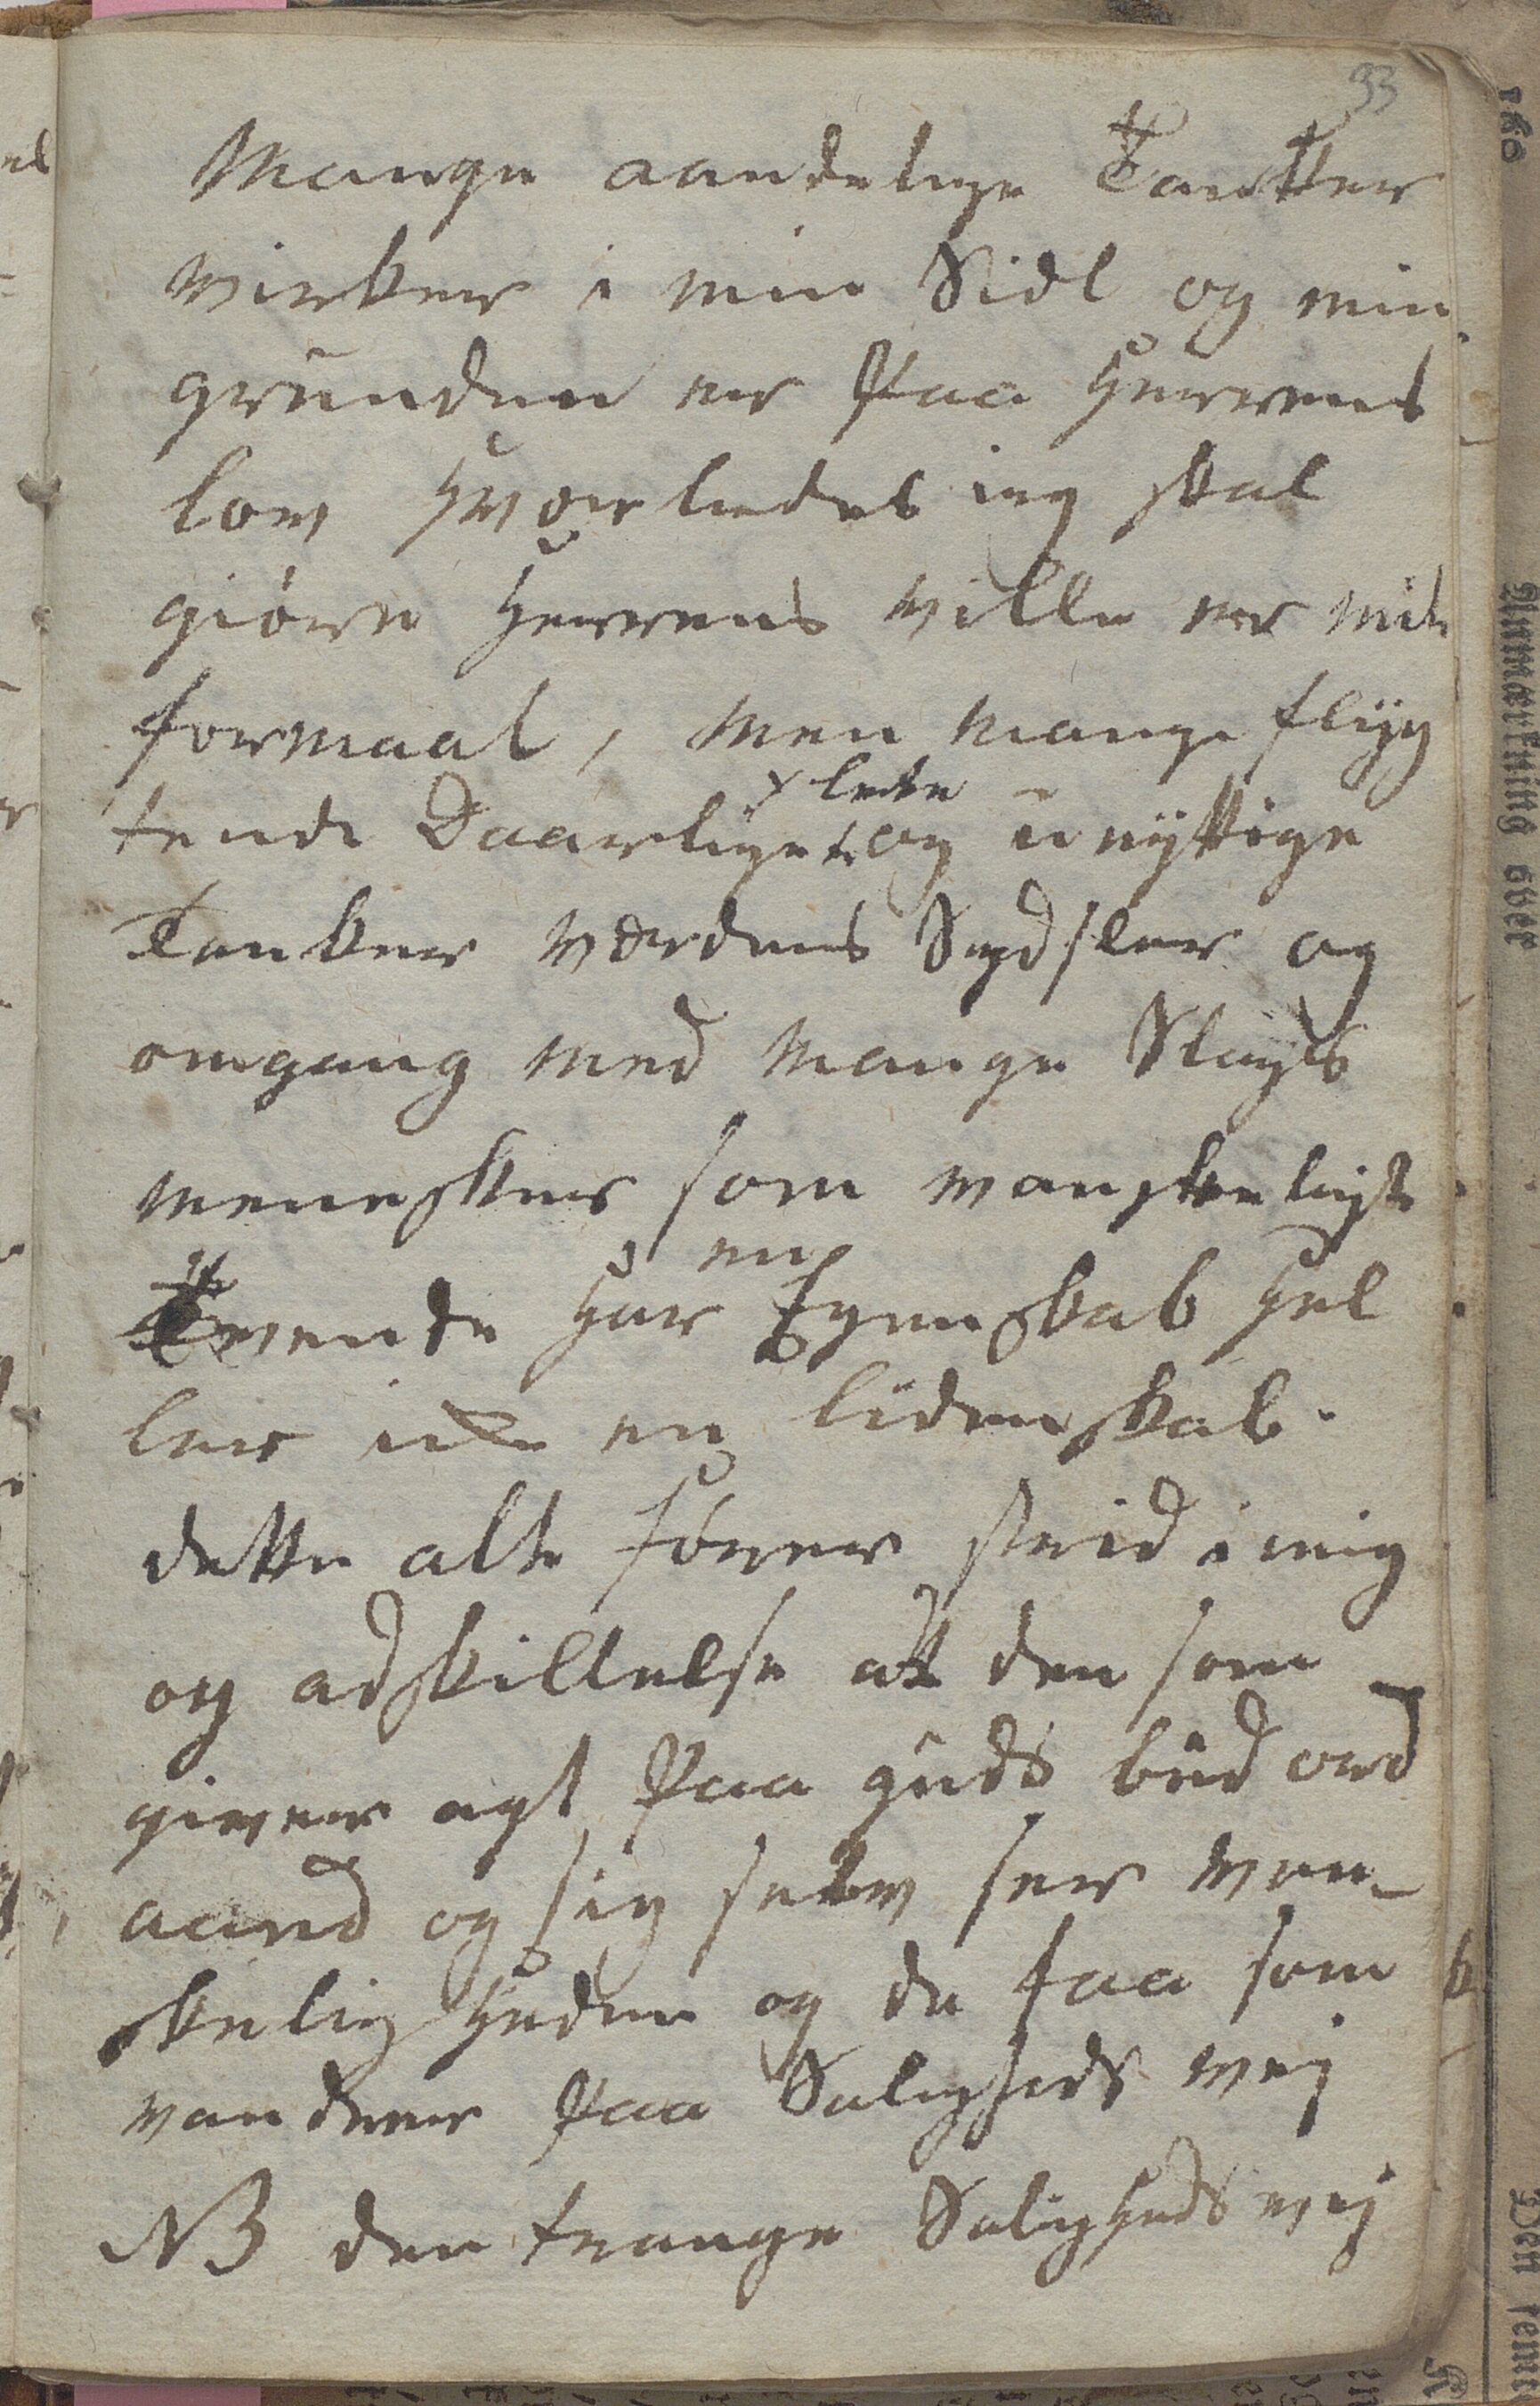 33
Mange aandelige Tanker
virker i min Siel og min
grunden er Paa Herrens
lov Hvorledes ieg skal
giøre Herrens Ville er mit
formaal, men mange flyg
tende Daarlige x og unyttige
x lette
Tanker verdens Sydsler og
omgang med mange Slags
mennesker som vanskeligt
vende Har en Egenskab Hel
ler ikke en lidenskab.
dette alt fører strid i mig
og adskillelse at den som
giver agt Paa guds bud ord
aand og sig selv ser van-
skeligheden og de faa som
vandrer Paa Saligheds vej
NB den trange Saligheds vej
Anmærkning over